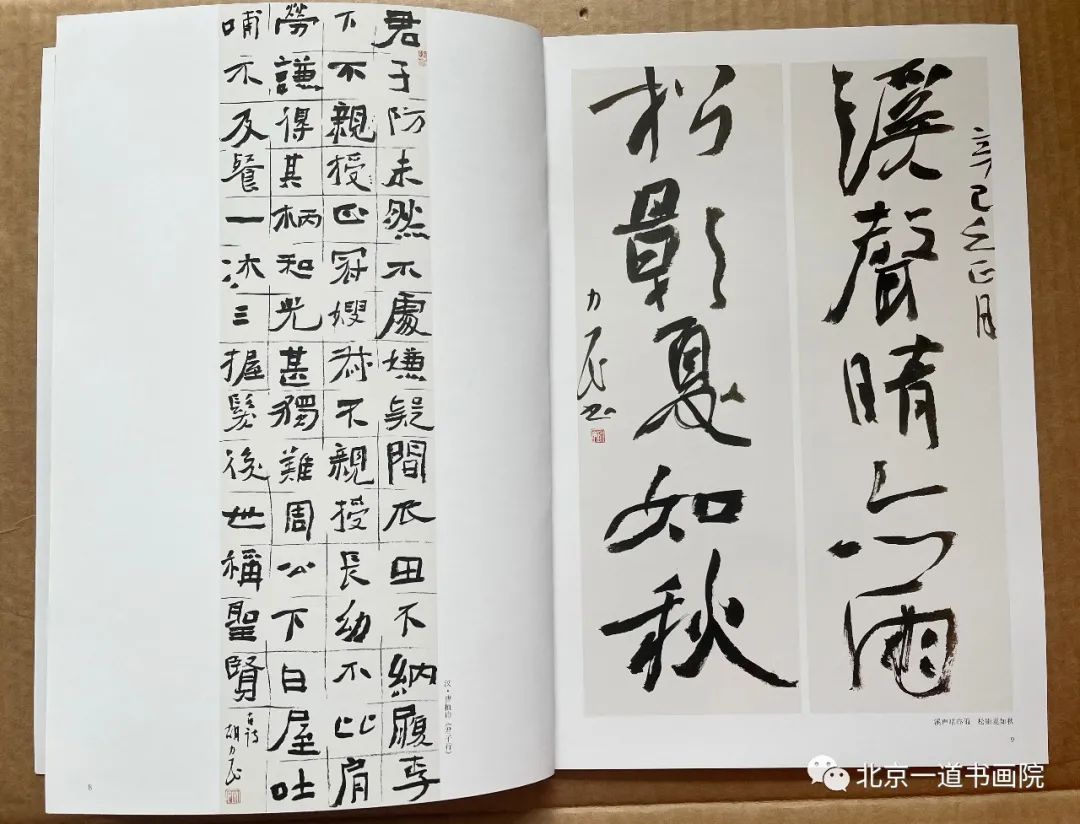 君子防未然不處嫌疑間瓜田不納履李
下不親授正冠嫂叔不親授長幼不比肩
勞謙得其柄和光甚獨難周公下白屋吐
哺不及餐一沐三握髮後世稱聖賢
古詩
胡力民
8
辛巳之正月
溪聲晴亦雨
松影夏如秋
力民书
溪声晴亦雨 松影夏如秋
9
北京一道书画院